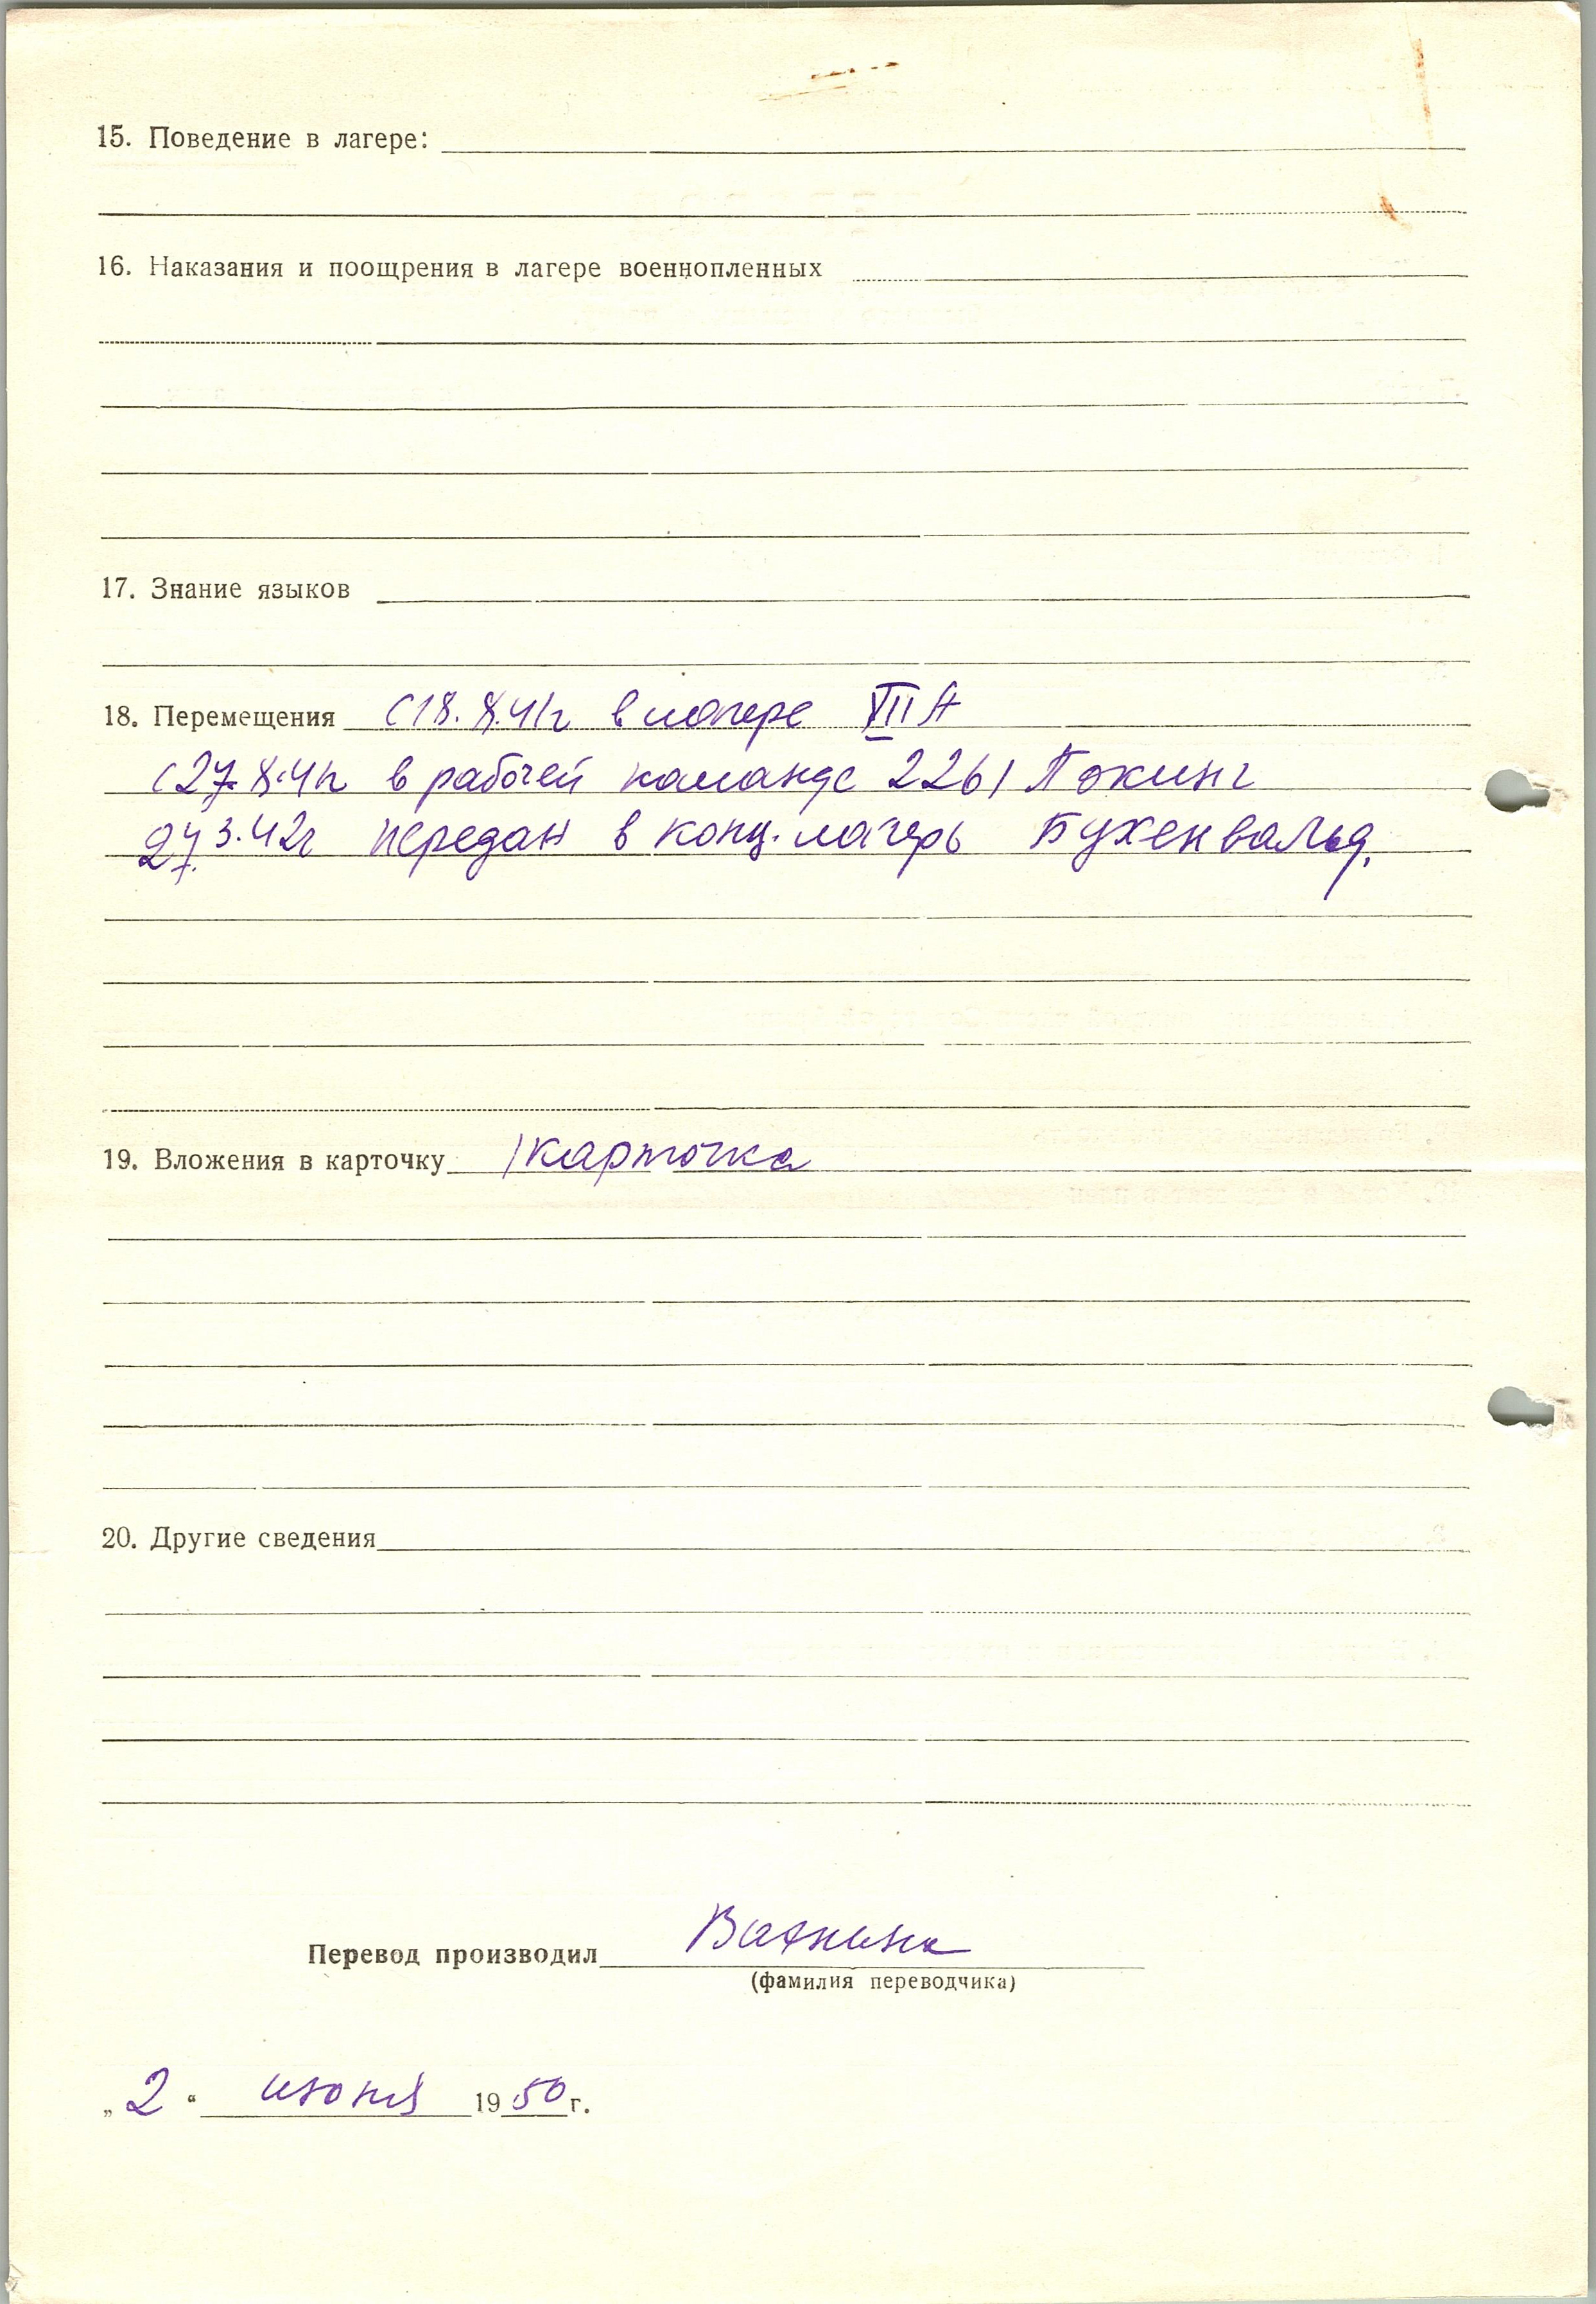 15. Поведение в лагере:
16. Наказания и поощрения в лагере военнопленных
17. Знание языков
18. Перемещения с 18.X.41г в лагере VII A
с 27.X.41г в рабочей команде 2261 Покинг
27.3.42г передан в конц. лагерь Бухенвальд.
19. Вложения в карточку 1 карточка
20. Другие сведения
Перевод производил
(фамилия переводчика)
„2“ июня 1950 г.